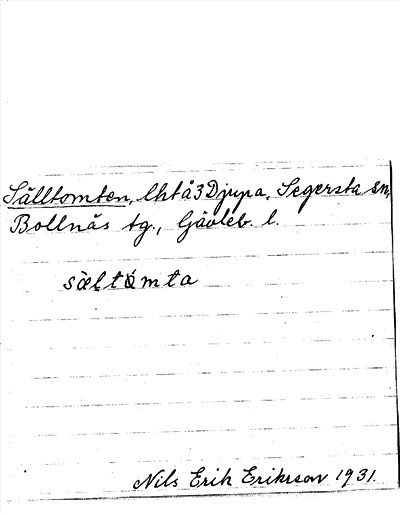 Sälltomten, lht å 3 Djupa, Segersta sn,
Bollnäs tg., Gävleb. l.
sàltómta
Nils Erik Erikson 1931.